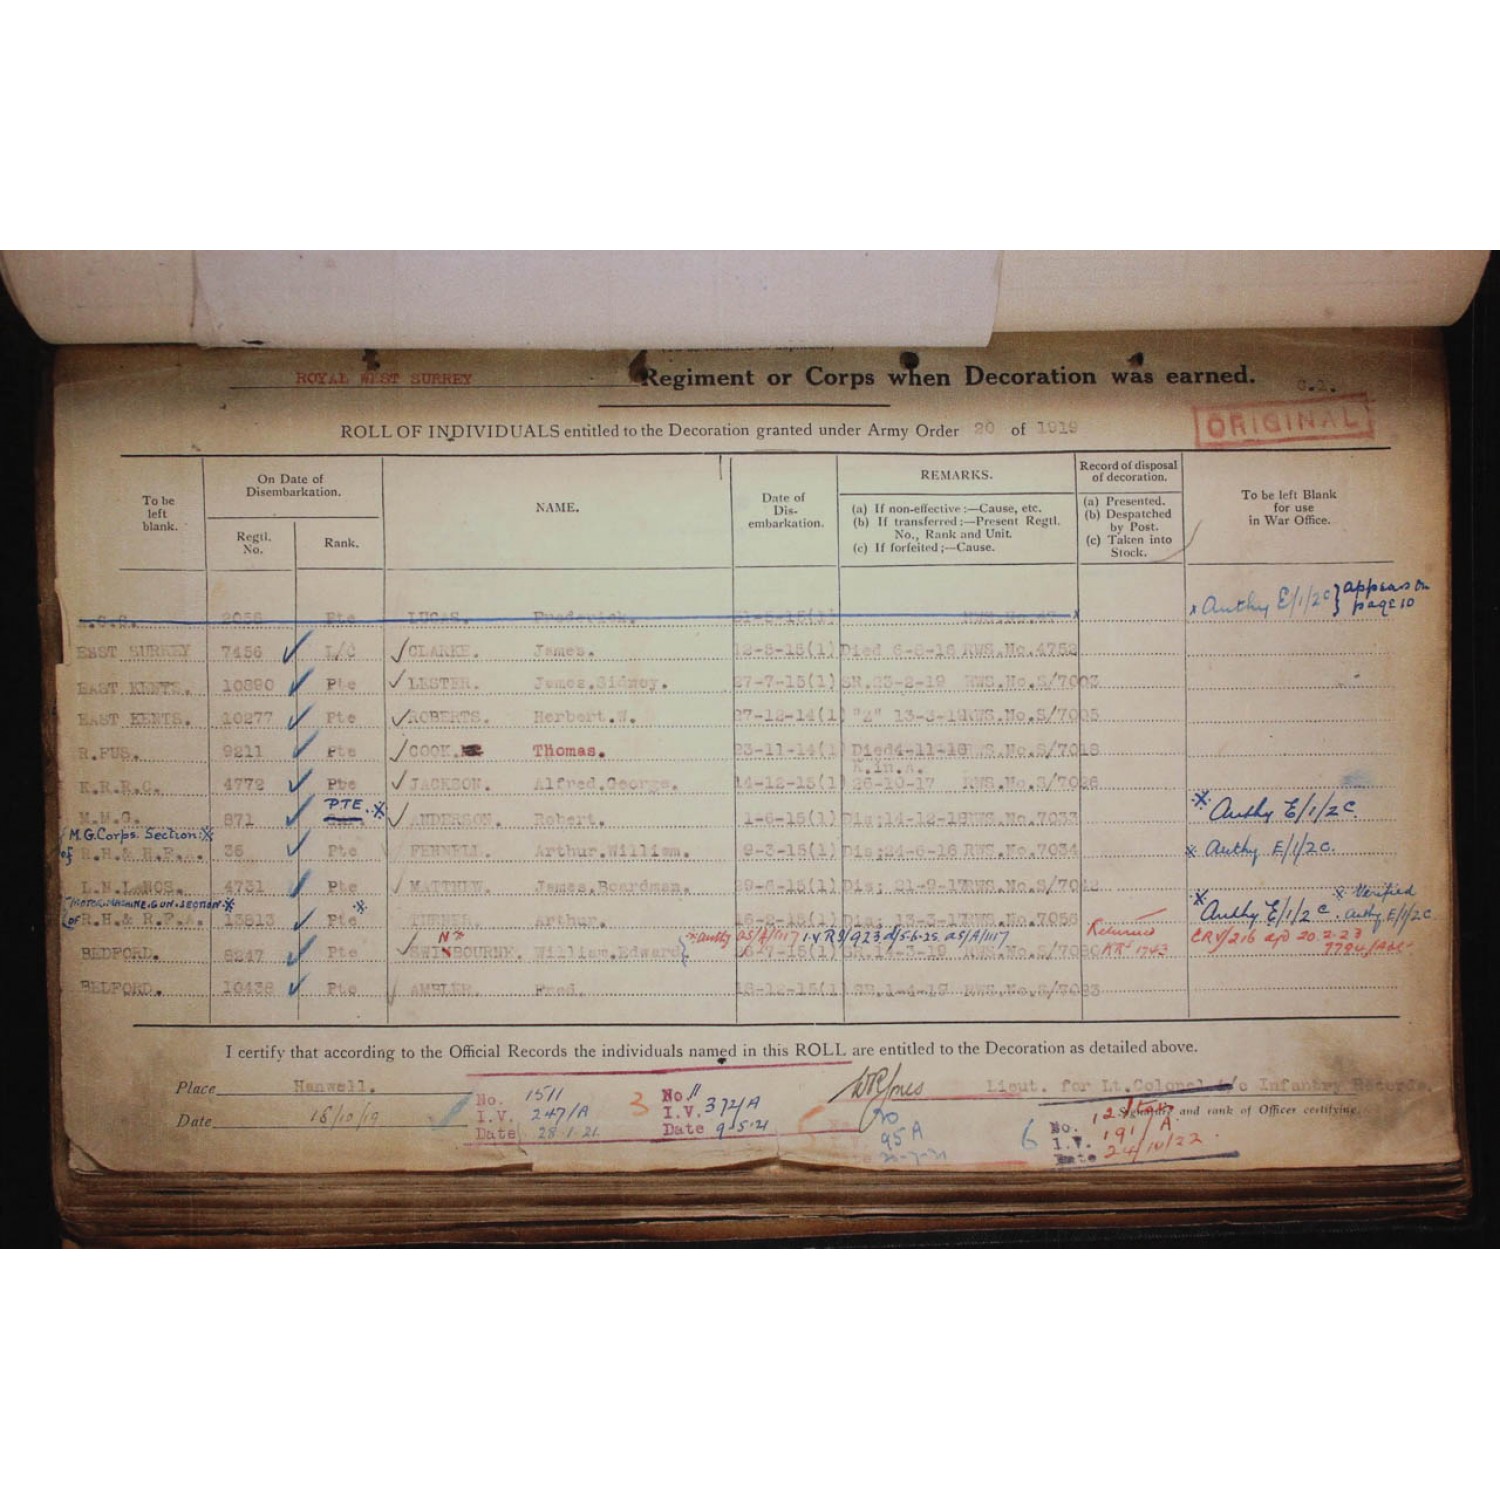 ROYAL WEST SURREY Regiment or Corps when Decoration was earned.
ORIGINAL
ROLL OF INDIVIDUALS entitled to the Decoration granted under Army Order 20 of 1919
To be left blank.
On Date of Disembarkation.
Regtl. No.
Rank.
NAME.
Date of Dis-embarkation.
REMARKS.
(a) If non-effective:—Cause, etc.
(b) If transferred:—Present Regtl. No., Rank and Unit.
(c) If forfeited;—Cause.
Record of disposal of decoration.
(a) Presented.
(b) Despatched by Post.
(c) Taken into Stock.
To be left Blank for use in War Office.
2056 Pte LUCAS. Frederick. x Authy E/1/2C } appears on page 10
EAST SURREY 7456 L/C CLARKE. James. 12-5-15(1) Died 6-8-16 RWS.No.4752
EAST KENTS. 10890 Pte LESTER. James.Sidney. 27-7-15(1) RWS.No.S/7003
EAST KENTS. 10277 Pte ROBERTS. Herbert.W. 27-12-14(1) "Z" 13-3-19 RWS.No.S/7005
R.FUS. 9211 Pte COOK. Thomas. 23-11-14(1) Died 4-11-18 RWS.No.S/7018
K.R.R.C. 4772 Pte JACKSON. Alfred.George. 14-12-15(1) K.in.A. 26-10-17 RWS.No.S/7026
M.M.G. 871 PTE. ※ ANDERSON. Robert. 1-6-15(1) Dis;14-12-18 RWS.No.7033 ※ Authy E/1/2C.
M.G.Corps. Section ※
of R.H.& R.F.A. 36 Pte FENNELL. Arthur.William. 9-3-15(1) Dis;24-6-16 RWS.No.7034 ※ Authy E/1/2C.
L.N.LANCS. 4731 Pte MATTHEW. James.Boardman. Dis; 21-9-17 RWS.No.
MOTOR.MACHINE.GUN.SECTION ※ ※ ※ ※ Verified
of R.H.& R.F.A. 13813 Pte Arthur. Dis; 13-3-17 RWS.No.7056 Authy E/1/2C. Authy E/1/2C
N ※ Authy Returned 20.2.23
BEDFORD. 8247 Pte SWINBOURNE. William.Edward
BEDFORD. 10438 Pte AMBLER. Fred. 18-12-15(1)
I certify that according to the Official Records the individuals named in this ROLL are entitled to the Decoration as detailed above.
Place Hanwell. Lieut. for Lt.Colonel i/c Infantry Records.
Date 16/10/19 Signature and rank of Officer certifying.
No. 1511
I.V. 247/A
Date 28-1-21.
3
No. 11
I.V. 372/A
Date 9-5-21
95A
6
No.
I.V. 191/A
Date 24/10/22.